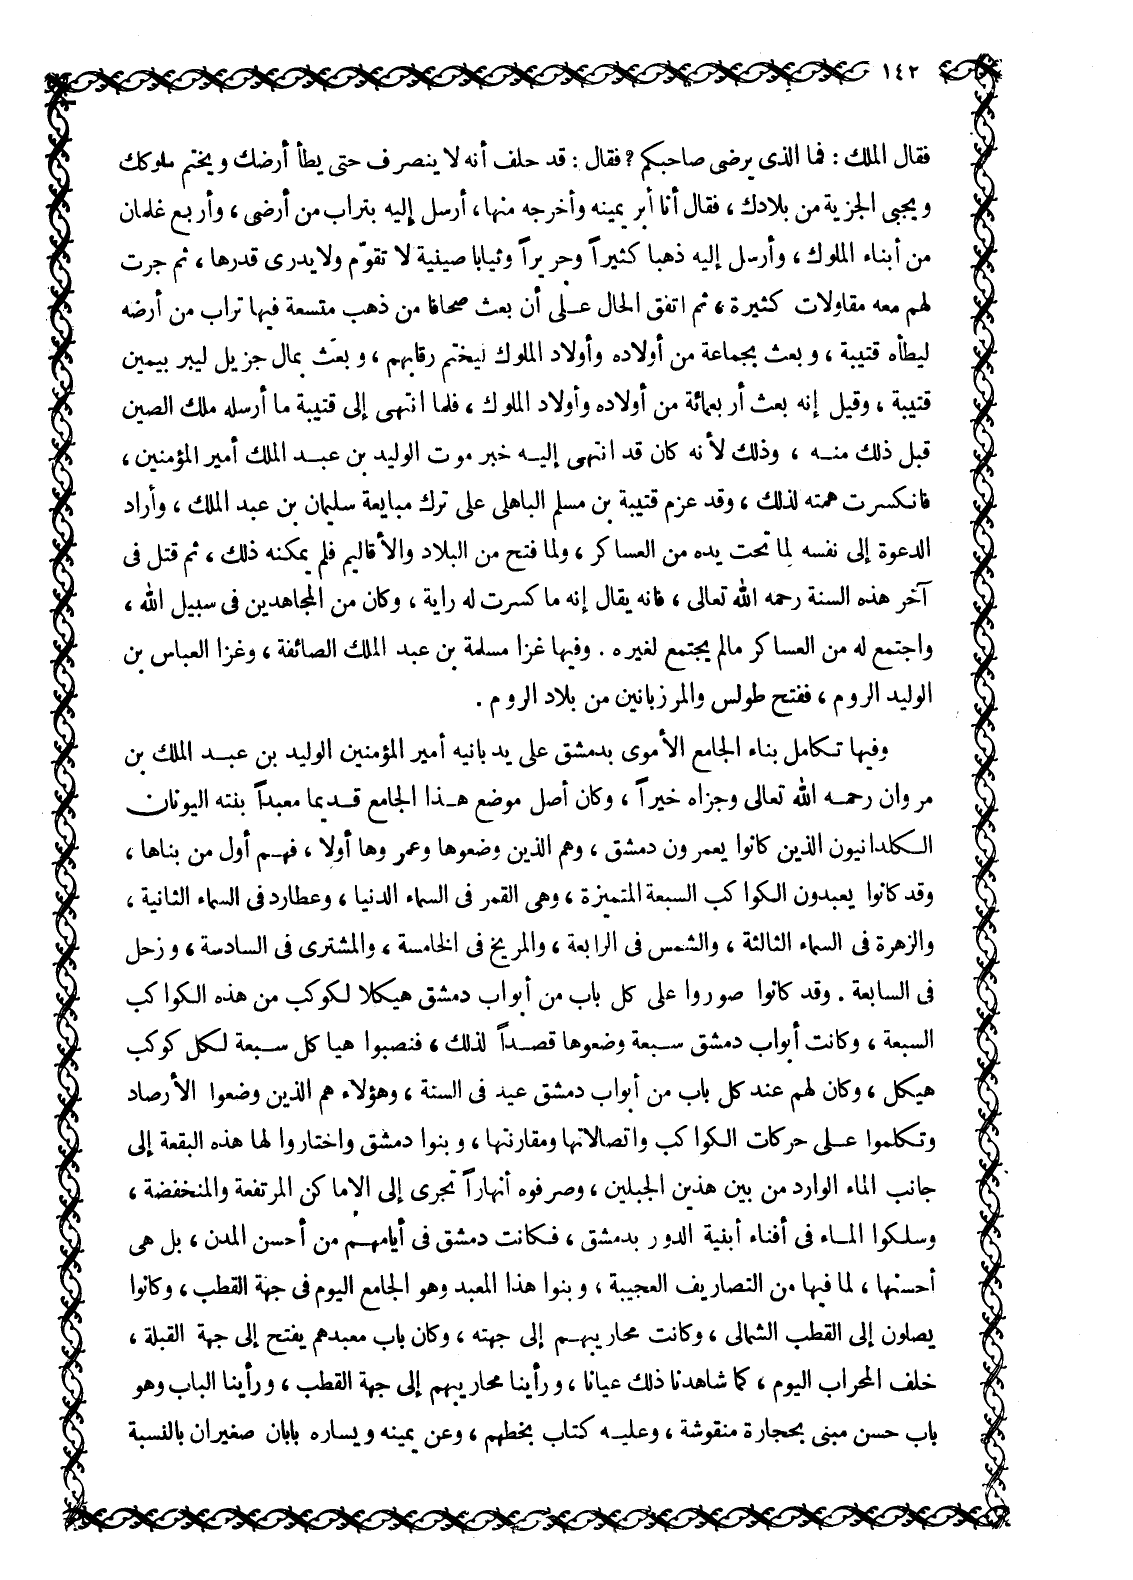 ١٤٢
فقال الملك : فما الذى يرضى صاحبكم ? فقال : قد حلف أنه لا ينصرف حتى يطأ أرضك ويختم ملوكك
ويجبى الجزية من بلادك ، فقال أنا أبر يمينه وأخرجه منها، أرسل إليه بتراب من أرضى ، وأربع غلمان
من أبناء الملوك ، وأرسل إليه ذهبا كثيراً وحريراً وثيابا صينية لا تقوّم ولا يدرى قدرها ، ثم جرت
لهم معه مقاولات كثيرة ، ثم اتفق الحال على أن بعث صحافا من ذهب متسعة فيها تراب من أرضه
ليطأه قتيبة ، وبعث بجماعة من أولاده وأولاد الملوك ليختم رقابهم ، وبعث بمال جزيل ليبر بيمين
قتيبة ، وقيل إنه بعث أربعمائة من أولاده وأولاد الملوك ، فلما انتهى إلى قتيبة ما أرسله ملك الصين
قبل ذلك منه ، وذلك لأنه كان قد انتهى إليه خبر موت الوليد بن عبد الملك أمير المؤمنين ،
فانكسرت همته لذلك ، وقد عزم قتيبة بن مسلم الباهلى على ترك مبايعة سليمان بن عبد الملك ، وأراد
الدعوة إلى نفسه لما تحت يده من العساكر ، ولما فتح من البلاد والأقاليم فلم يمكنه ذلك ، ثم قتل فى
آخر هذه السنة رحمه الله تعالى ، فانه يقال إنه ما كسرت له راية ، وكان من المجاهدين فى سبيل الله ،
واجتمع له من العساكر مالم يجتمع لغيره . وفيها غزا مسلمة بن عبد الملك الصائفة ، وغزا العباس بن
الوليد الروم ، ففتح طولس والمرزبانين من بلاد الروم .
وفيها تكامل بناء الجامع الأموى بدمشق على يد بانيه أمير المؤمنين الوليد بن عبد الملك بن
مروان رحمه الله تعالى وجزاه خيراً ، وكان أصل موضع هذا الجامع قديما معبداً بنته اليونان
الكلدانيون الذين كانوا يعمرون دمشق ، وهم الذين وضعوها وعمروها أولا ، فهم أول من بناها ،
وقد كانوا يعبدون الكواكب السبعة المتميزة ، وهى القمر فى السماء الدنيا ، وعطارد فى السماء الثانية ،
والزهرة فى السماء الثالثة ، والشمس فى الرابعة ، والمريخ فى الخامسة ، والمشترى فى السادسة ، وزحل
فى السابعة . وقد كانوا صوروا على كل باب من أبواب دمشق هيكلا لكوكب من هذه الكواكب
السبعة ، وكانت أبواب دمشق سبعة وضعوها قصداً لذلك ، فنصبوا هياكل سبعة لكل كوكب
هيكل ، وكان لهم عند كل باب من أبواب دمشق عيد فى السنة ، وهؤلاء هم الذين وضعوا الأرصاد
وتكلموا على حركات الكواكب واتصالاتها ومقارنتها ، وبنوا دمشق واختاروا لها هذه البقعة إلى
جانب الماء الوارد من بين هذين الجبلين ، وصرفوه أنهاراً تجرى إلى الاماكن المرتفعة والمنخفضة ،
وسلكوا الماء فى أفناء أبنية الدور بدمشق ، فكانت دمشق فى أيامهم من أحسن المدن ، بل هى
أحسنها ، لما فيها من التصاريف العجيبة ، وبنوا هذا المعبد وهو الجامع اليوم فى جهة القطب ، وكانوا
يصلون إلى القطب الشمالى ، وكانت محاريبهم إلى جهته ، وكان باب معبدهم يفتح إلى جهة القبلة ،
خلف المحراب اليوم ، كما شاهدنا ذلك عيانا ، ورأينا محاريبهم إلى جهة القطب ، ورأينا الباب وهو
باب حسن مبنى بحجارة منقوشة ، وعليه كتاب بخطهم ، وعن يمينه ويساره بابان صغيران بالنسبة